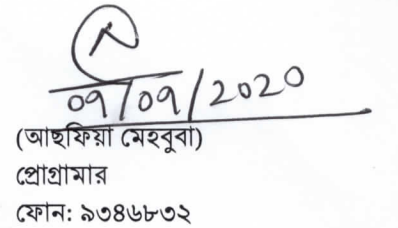 09/09/2020
(আছফিয়া মেহবুবা)
প্রোগ্রামার
ফোন: ৯৩৪৬৮৩২